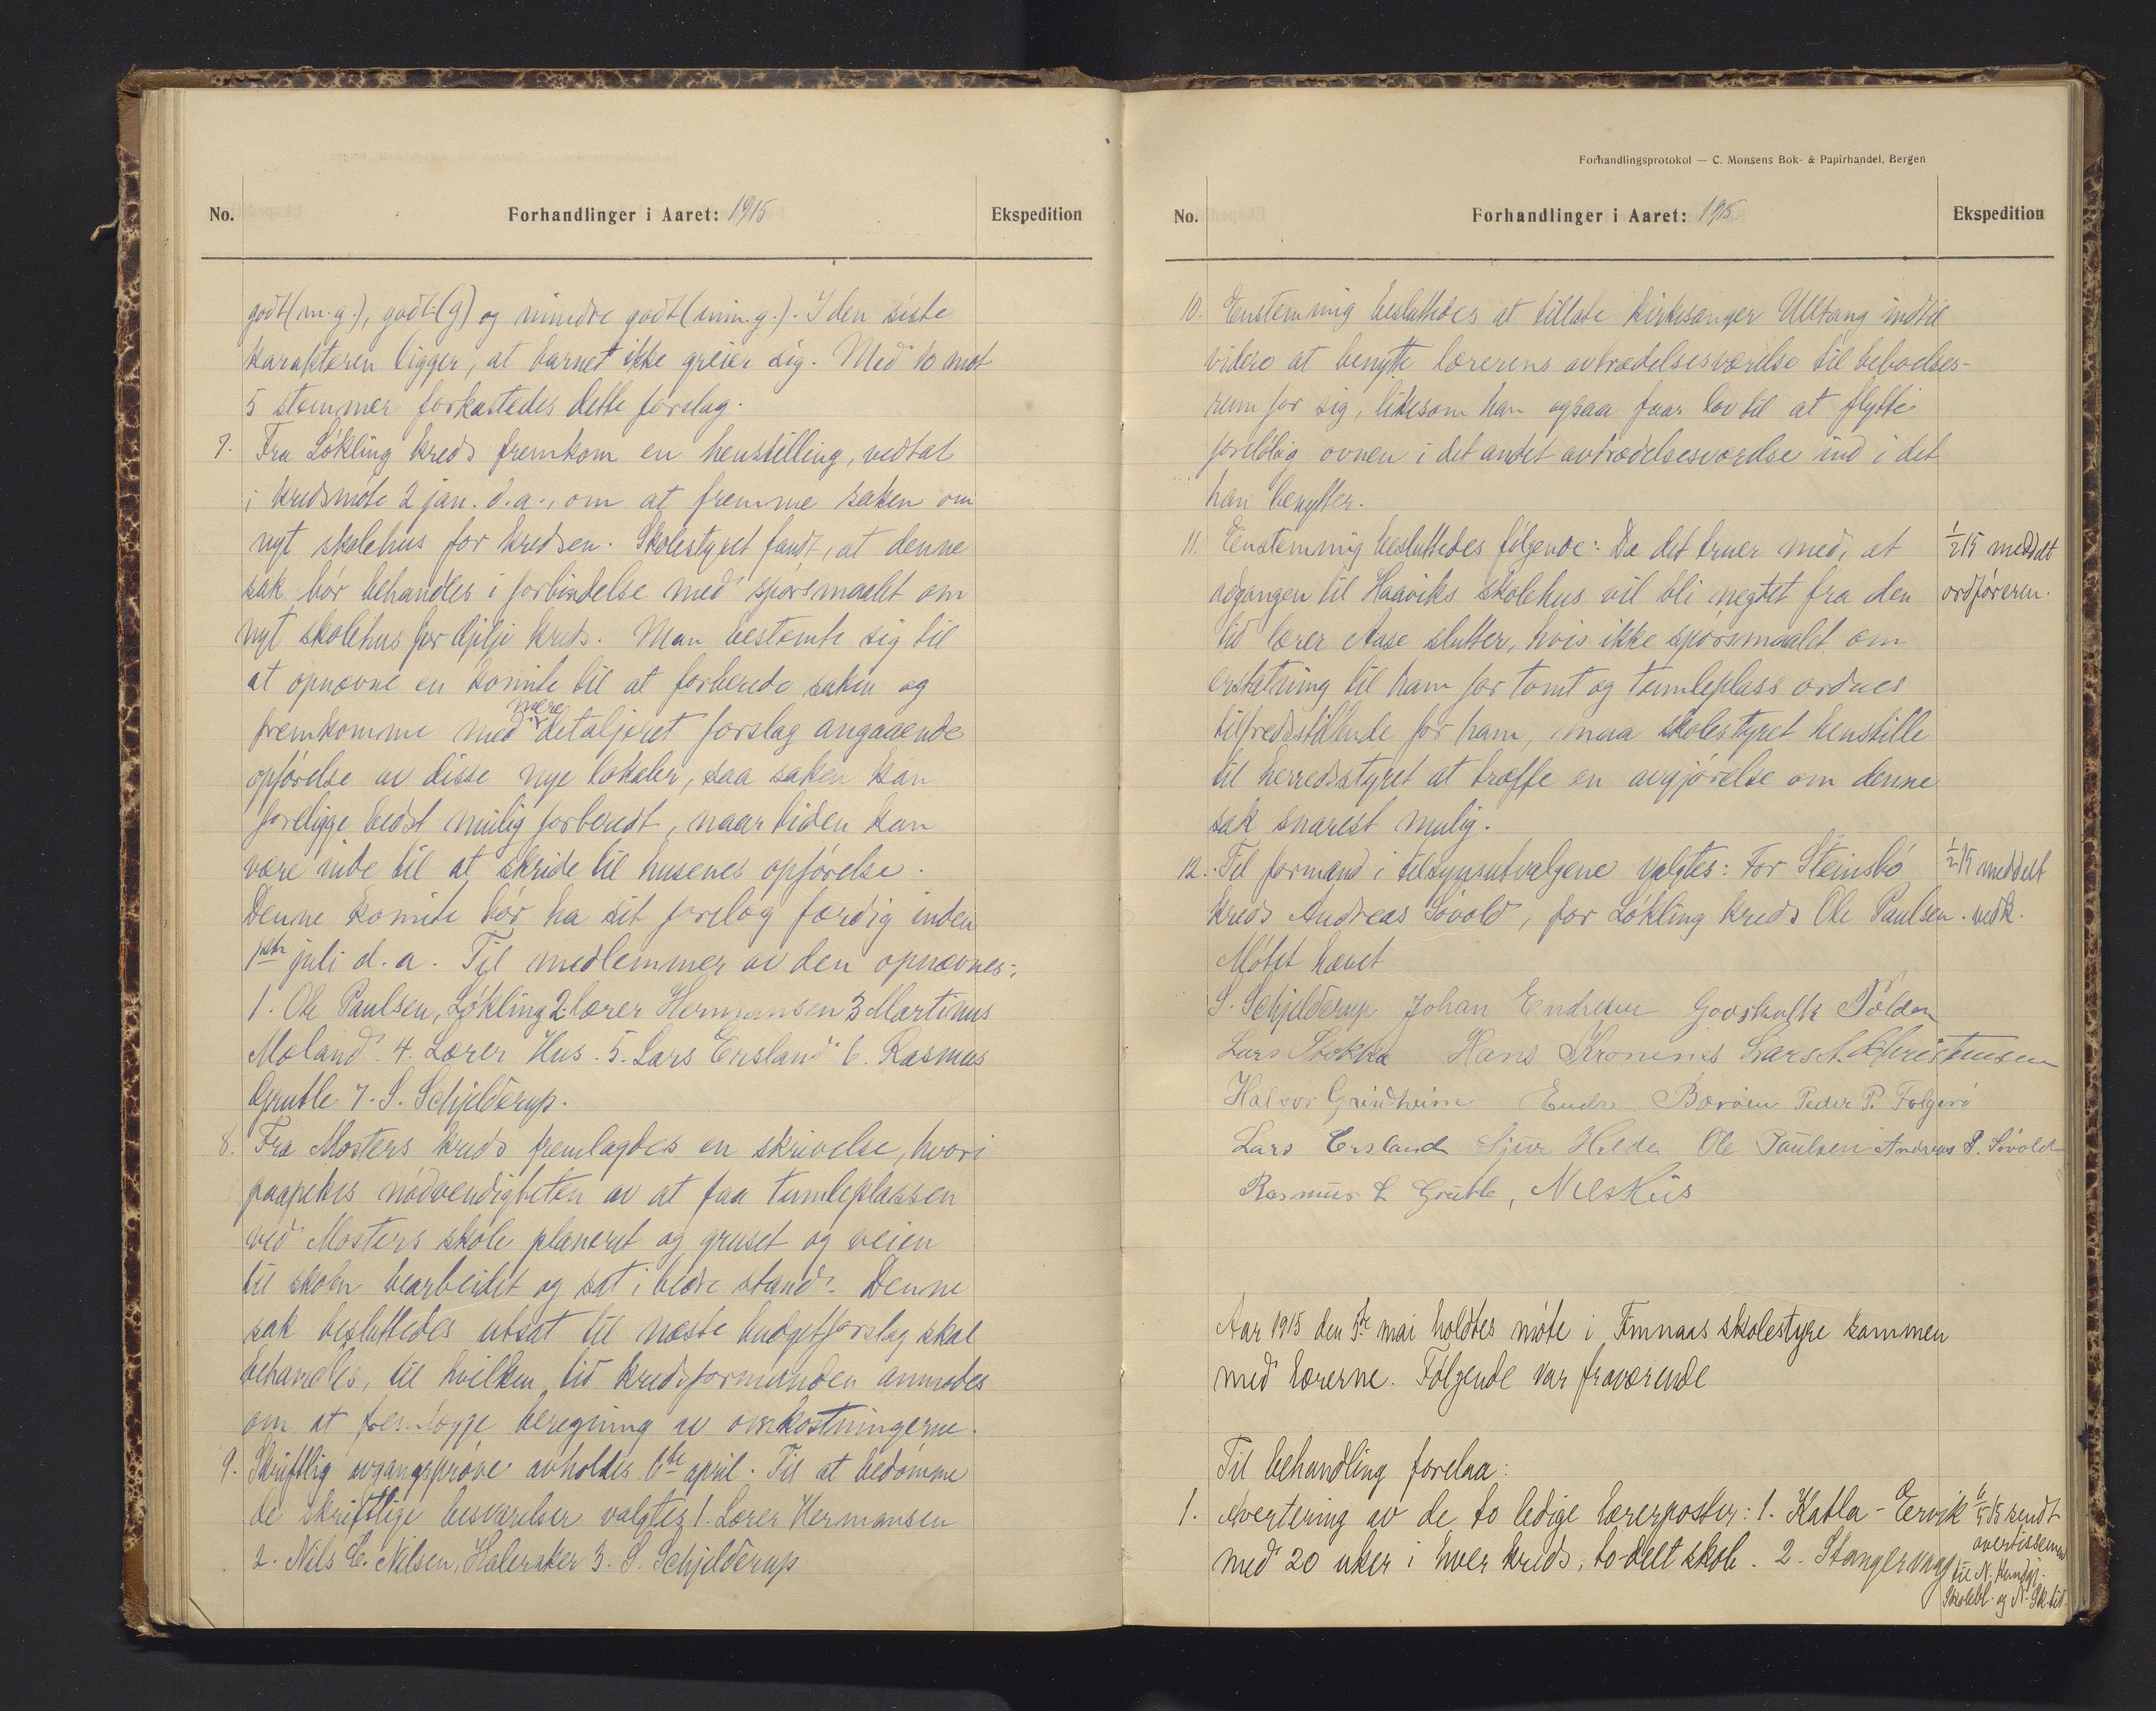 No.
Forhandlinger i Aaret: 1915
Ekspedition
godt (m.g.), godt (g) og mindre godt (min.g.). I den siste
karakteren ligger, at barnet ikke greier sig. Med 10 mot
5 stemmer forkastedes dette forslag.
7. Fra Løkling kreds fremkom en henstilling, vedtat
i kredsmøte 2 jan. d.a., om at fremme saken om
nyt skolehus for kredsen. Skolestyret fandt, at denne
sak bør behandles i forbindelse med spørsmaalet om
nyt skolehus for kreds. Man bestemte sig til
at opnævne en komite til at forberede saken og
fremkomme med mere detaljeret forslag angaaende
opførelse av disse nye lokaler, saa saken kan
foreligge bedst mulig forberedt, naar tiden kan
være inde til at skride til husenes opførelse.
Denne komite bør ha sit forslag færdig inden
1ste juli d.a. Til medlemmer av den opnævnes:
1. Ole Paulsen, Løkling 2. lærer Hermansen 3 Martinus
Moland 4. Lærer Hus. 5. Lars Ersland 6. Rasmus
Grutle 7. S. Schjelderup.
8. Fra Mosters kreds fremlagdes en skrivelse, hvori
paapekes nødvendigheten av at faa tumleplassen
ved Mosters skole planert og gruset og veien
til skolen bearbeidet og sat i bedre stand. Denne
sak besluttedes utsat til næste budgetforslag skal
behandles, til hvilken tid kredsformanden anmodes
om at fremlægge beregning av omkostningerne.
9. Skriftlig avgangsprøve avholdes 6te april. Til at bedømme
de skriftlige besvarelser valgtes 1. Lærer Hermansen
2. Nils C. Nilsen, Haleraker 3. S. Schjelderup
Forhandlingsprotokol — C. Monsens Bok- & Papirhandel, Bergen
No.
Forhandlinger i Aaret: 1915
Ekspedition
10. Enstemmig besluttedes at tillate kirkesanger Ulltang indtil
videre at benytte lærerens avtrædelsesværelse til beboelses-
rum for sig, likesom han ogsaa faar lov til at flytte
foreløbig ovnen i det andet avtrædelsesværelse ind i det
han benytter.
11. Enstemmig besluttedes følgende: Da det truer med, at
1/2 15 meddelt
adgangen til Haaviks skolehus vil bli negtet fra den
ordføreren.
tid lærer Aase slutter, hvis ikke spørsmaalet om
erstatning til ham for tomt og tumleplass ordnes
tilfredsstillende for ham, maa skolestyret henstille
til herredsstyret at træffe en avgjørelse om denne
sak snarest mulig.
12. Til formænd i tilsynsutvalgene valgtes: For Steinsbø
1/2 15 meddelt
kreds Andreas Søvold, for Løkling kreds Ole Paulsen.
vedk.
Møtet hævet
S. Schjelderup Johan Endresen Godskalk Tolden
Lars Stokka Hans Kronenes Lars A. Christensen
Halvor Grindheim Endre Bærøen Peder P. Folgerø
Lars Ersland Sjur Helde Ole Paulsen Andreas P. Søvold
Rasmus L Grutle, Nils Hus
Aar 1915 den 5te mai holdtes møte i Finnaas skolestyre sammen
med lærerne. Følgende var fraværende
Til behandling forelaa:
1. Avertering av de to ledige lærerposter: 1. Katla - Eervik
6/5 15 sendt
avertissement
med 20 uker i hver kreds, to-delt skole. 2. Stangervaag
til N. Kundgj.
Skolebl. og N. Sk.tid.